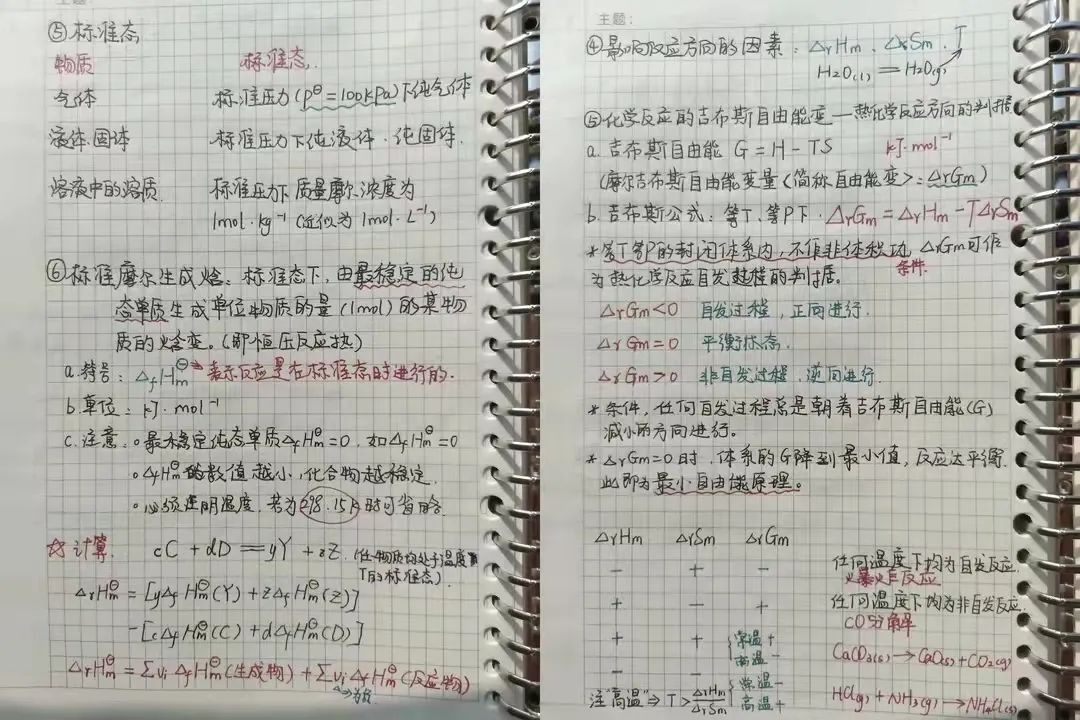 ⑤标准态
物质 标准态
气体 标准压力(p⊖=100kPa)下纯气体
液体.固体 标准压力下纯液体.纯固体.
溶液中的溶质 标准压力下质量摩尔浓度为
1mol·kg⁻¹(近似为1mol·L⁻¹)
⑥标准摩尔生成焓:标准态下,由最稳定的纯
态单质生成单位物质的量(1mol)的某物
质的焓变。(即恒压反应热)
a.符号:ΔfHm⊖→表示反应是在标准态时进行的.
b.单位:kJ·mol⁻¹
c.注意:。最稳定纯态单质ΔfHm⊖=0,如ΔfHm⊖=0
。ΔfHm⊖的数值越小,化合物越稳定.
。必须注明温度,若为298.15K时可省略.
☆计算. cC+dD=yY+zZ.(任一物质均处于温度
T的标准态)
ΔrHm⊖=[yΔfHm⊖(Y)+zΔfHm⊖(Z)]
-[cΔfHm⊖(C)+dΔfHm⊖(D)]
ΔrHm⊖=Σνi ΔfHm⊖(生成物)+Σνi ΔfHm⊖(反应物)
→为负
主题:
④影响反应方向的因素:ΔrHm.ΔrSm.T
H2O(l)=H2O(g)
⑤化学反应的吉布斯自由能变—热化学反应方向的判据
a.吉布斯自由能 G=H-TS kJ·mol⁻¹
(摩尔吉布斯自由能变量<简称自由能变>:ΔrGm)
b.吉布斯公式:等T.等P下.ΔrGm=ΔrHm-TΔrSm
*等T等P的封闭体系内,不作非体积功,ΔrGm可作
条件.
为热化学反应自发过程的判据。
ΔrGm<0 自发过程,正向进行.
ΔrGm=0 平衡状态.
ΔrGm>0 非自发过程.逆向进行.
*条件,任何自发过程总是朝着吉布斯自由能(G)
减小的方向进行。
*ΔrGm=0时.体系的G降到最小值,反应达平衡.
此即为最小自由能原理。
ΔrHm ΔrSm ΔrGm
- + - 任何温度下均为自发反应.
火爆炸反应
+ - + 任何温度下均为非自发反应.
CO分解
+ + {常温+ 高温- CaCO3(s)→CaO(s)+CO2(g)
- - {常温- 高温+ HCl(g)+NH3(g)→NH4Cl(s)
注"高温"⇒T>ΔrHm/ΔrSm